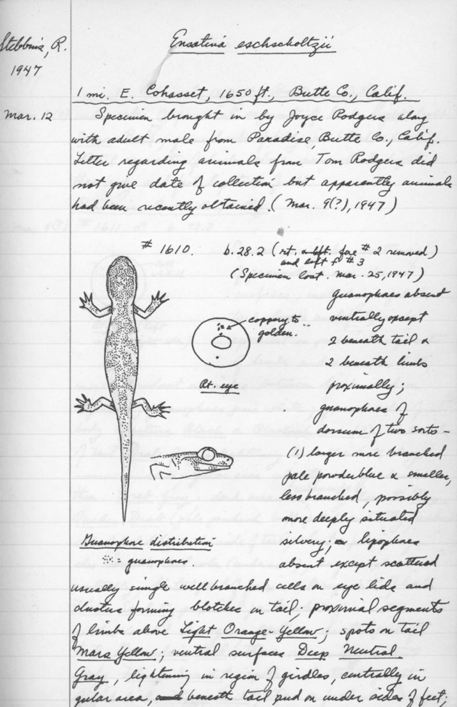 Stebbins, R.
1947
Ensatina eschscholtzii
1 mi. E. Cohasset, 1650 ft., Butte Co., Calif.
Mar. 12
Specimen brought in by Joyce Rodgers along
with adult male from Paradise, Butte Co., Calif.
Letter regarding animals from Tom Rodgers did
not give date of collection but apparently animals
had been recently obtained. (Mar. 9(?), 1947)
# 1610. b. 28.2 (rt. fore # 2 removed)
and left f # 3
(Specimen lost. Mar. 25, 1947)
coppery to
golden.
Rt. eye
guanophores absent
ventrally except
2 beneath tail &
2 beneath limbs
proximally;
guanophores of
dorsum of two sorts –
(1) larger more branched
pale powder blue & smaller,
less branched, possibly
more deeply situated
silvery; lipophores
absent except scattered
Guanophore distribution
= guanophores.
usually single well branched cells on eye lids and
clusters forming blotches on tail; proximal segments
of limbs above Light Orange-Yellow; spots on tail
Mars Yellow; ventral surfaces Deep Neutral
Gray, lightening in region of girdles, centrally in
gular area, beneath tail and on under sides of feet;